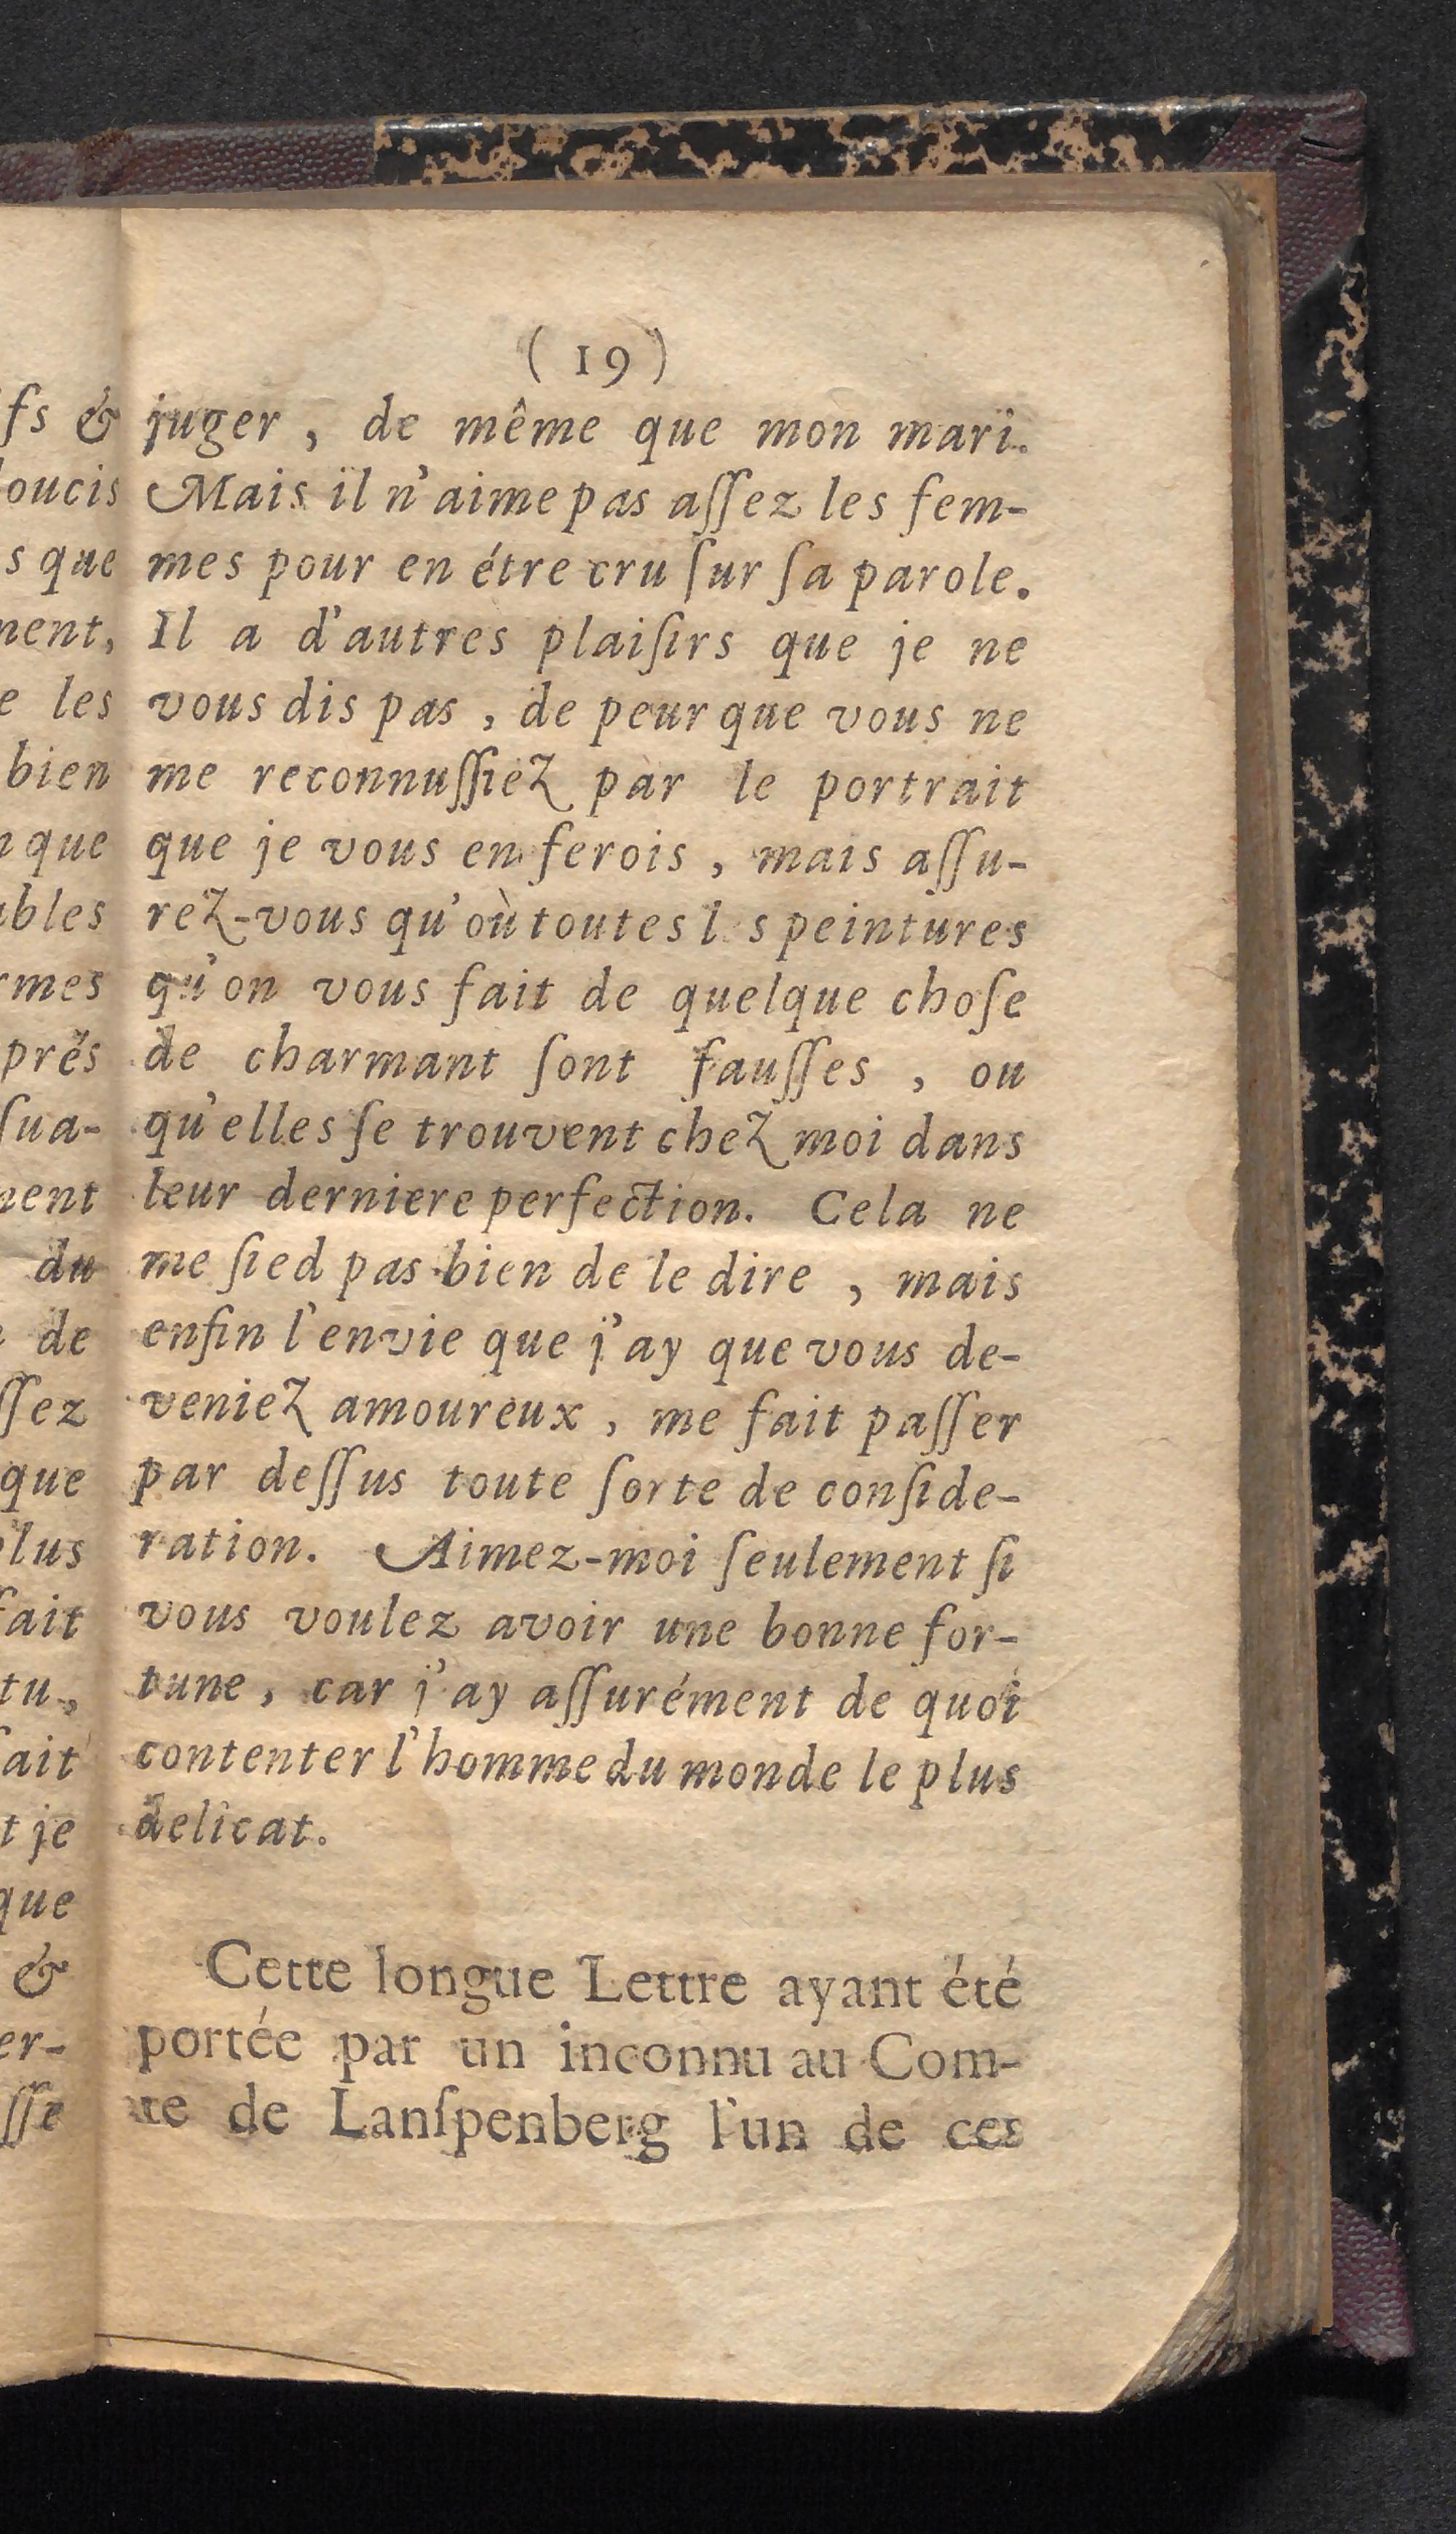 ( 19 )
juger, de même que mon mari.
Mais il n'aime pas aſſez les fem-
mes pour en étre cru ſur ſa parole.
Il a d'autres plaiſirs que je ne
vous dis pas, de peur que vous ne
me reconnuſſiez par le portrait
que je vous en ferois, mais aſſu-
rez-vous qu'où toutes l s peintures
qu'on vous fait de quelque choſe
de charmant ſont fauſſes, ou
qu'elles ſe trouvent chez moi dans
leur derniere perfection. Cela ne
me ſied pas bien de le dire, mais
enfin l'envie que j'ay que vous de-
veniez amoureux, me fait paſſer
par deſſus toute ſorte de conſide-
ration. Aimez-moi ſeulement ſi
vous voulez avoir une bonne for-
tune, car j'ay aſſurément de quoi
contenter l'homme du monde le plus
delicat.
Cette longue Lettre ayant été
portée par un inconnu au Com-
te de Lanſpenberg l'un de ces